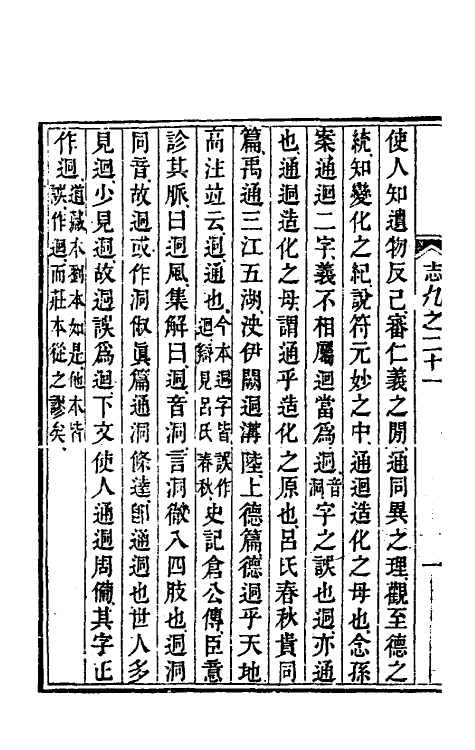 志九之二十一 一
使人知遺物反己審仁義之閒通同異之理觀至德之
統知變化之紀說符元妙之中通迴造化之母也念孫
案通迴二字義不相屬迴當爲迵音洞字之誤也迵亦通
也通迵造化之母謂通乎造化之原也呂氏春秋貴同
篇禹通三江五湖決伊闕迵溝陸上德篇德迵乎天地
高注竝云迵通也今本迵字皆誤作迴辯見呂氏春秋史記倉公傳臣意
診其脈曰迵風集解曰迵音洞言洞徹入四肢也迵洞
同音故迵或作洞俶眞篇通洞條達卽通迵也世人多
見迴少見迵故迵誤爲迴下文使人通迵周備其字正
作迵道藏本劉本如是他本皆誤作迴而莊本從之謬矣